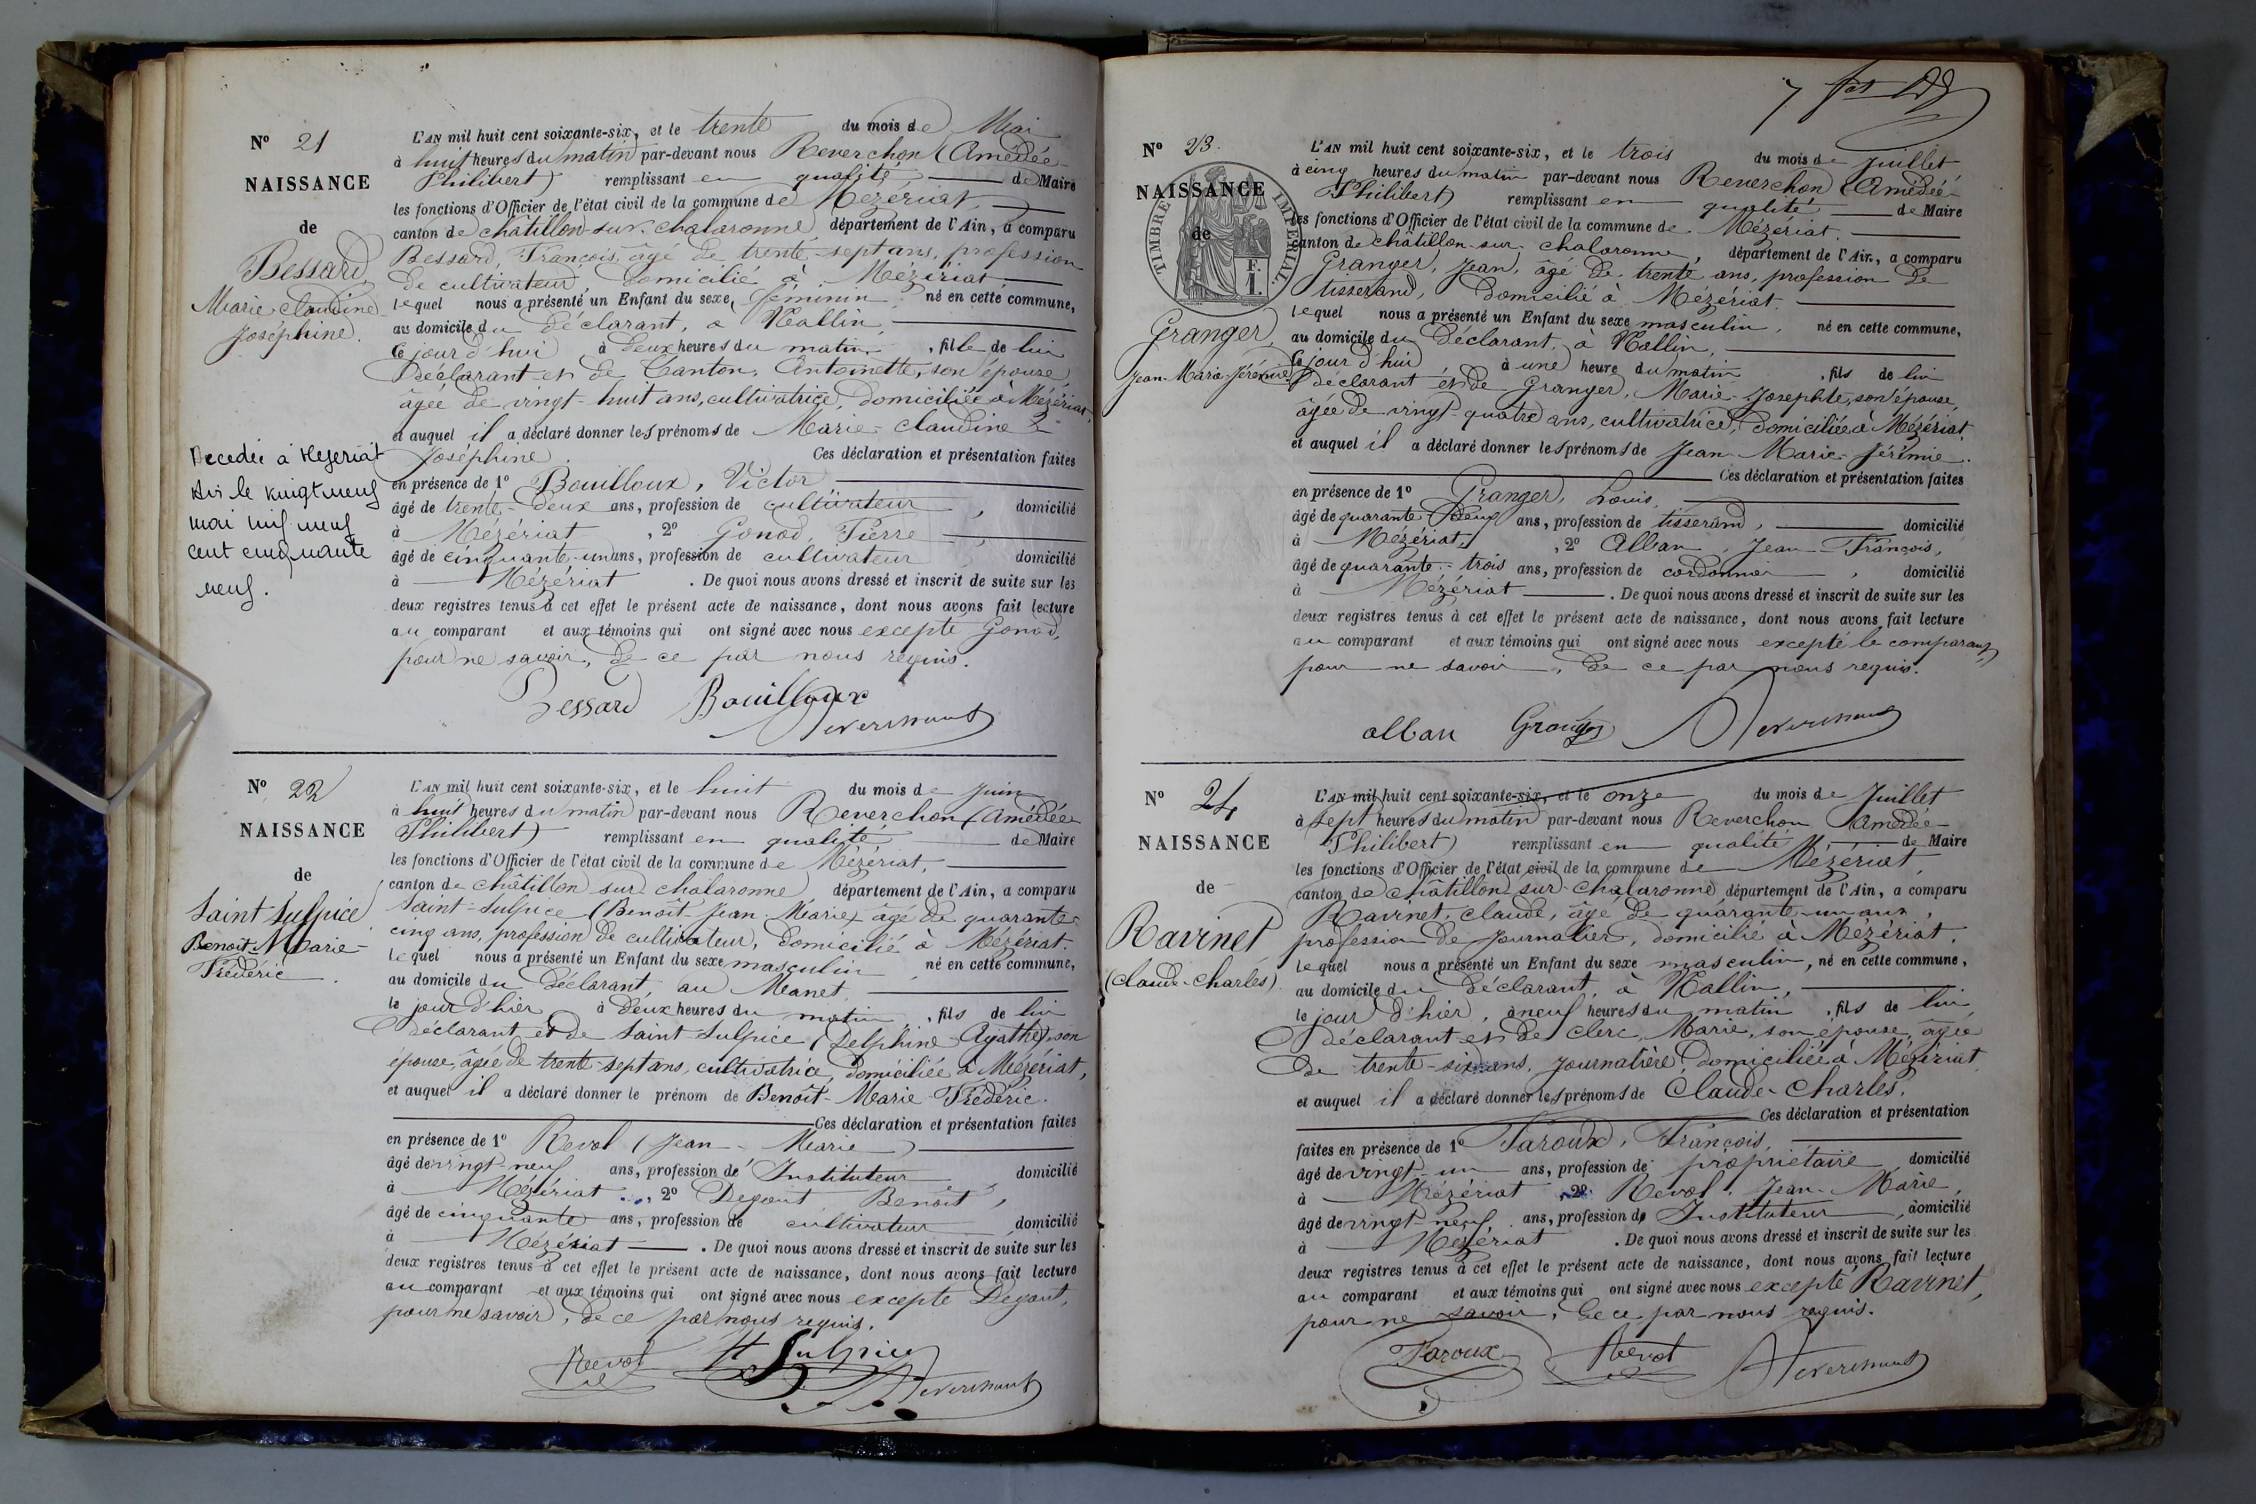 N° 21
NAISSANCE
de
Bessard,
Marie-Claudine
Joséphine.
Décédée à Mézériat
Ain le vingt neuf
mai mil neuf
cent cinquante
neuf.
L'AN mil huit cent soixante-six, et le trente du mois de Mai
à huit heures du matin par-devant nous Reverchon (Amédée-
Philibert) remplissant en qualité de Maire
les fonctions d'Officier de l'état civil de la commune de Mézériat,
canton de châtillon-sur-chalaronne département de l'Ain, a comparu
Bessard, François, âgé de trente-sept ans, profession
de cultivateur, domicilié à Mézériat
lequel nous a présenté un Enfant du sexe féminin, né en cette commune,
au domicile du déclarant, à Vallin,
ce jour d'hui à deux heures du matin, fille de lui
déclarant et de Canton, Antoinette, son épouse,
âgée de vingt-huit ans, cultivatrice, domiciliée à Mézériat,
et auquel il a déclaré donner les prénoms de Marie-Claudine-
Joséphine. Ces déclaration et présentation faites
en présence de 1° Bouilloux, Victor
âgé de trente-deux ans, profession de cultivateur, domicilié
à Mézériat, 2° Gonod, Pierre
âgé de cinquante-un ans, profession de cultivateur domicilié
à Mézériat. De quoi nous avons dressé et inscrit de suite sur les
deux registres tenus à cet effet le présent acte de naissance, dont nous avons fait lecture
au comparant et aux témoins qui ont signé avec nous excepté Gonod,
pour ne savoir, de ce par nous requis.
Bessard Bouilloux
Reverchon
N° 22
NAISSANCE
de
Saint Sulpice
Benoit-Marie-
Frédéric.
L'AN mil huit cent soixante-six, et le huit du mois de juin
à huit heures du matin par-devant nous Reverchon (Amédée
Philibert) remplissant en qualité de Maire
les fonctions d'Officier de l'état civil de la commune de Mézériat,
canton de châtillon sur chalaronne département de l'Ain, a comparu
Saint-Sulpice (Benoît-Jean-Marie) âgé de quarante-
cinq ans, profession de cultivateur, domicilié à Mézériat.
lequel nous a présenté un Enfant du sexe masculin né en cette commune,
au domicile du déclarant, au Manet,
le jour d'hier à deux heures du matin, fils de lui
déclarant et de Saint Sulpice (Delphine Agathe), son
épouse, âgée de trente-sept ans, cultivatrice, domiciliée à Mézériat,
et auquel il a déclaré donner le prénom de Benoît-Marie Frédéric.
Ces déclaration et présentation faites
en présence de 1° Revol (Jean-Marie)
âgé de vingt-neuf ans, profession de Instituteur, domicilié
à Mézériat, 2° Degout Benoit,
âgé de cinquante ans, profession de cultivateur domicilié
à Mézériat. De quoi nous avons dressé et inscrit de suite sur les
deux registres tenus à cet effet le présent acte de naissance, dont nous avons fait lecture
au comparant et aux témoins qui ont signé avec nous excepté Degout,
pour ne savoir, de ce par nous requis.
Revol St Sulpice
Reverchon
7
N° 23.
NAISSANCE
de
TIMBRE IMPERIAL.
F.
1.
Granger,
Jean-Marie-Jérémie
L'AN mil huit cent soixante-six, et le trois du mois de juillet
à cinq heures du matin par-devant nous Reverchon (Amédée-
Philibert) remplissant en qualité de Maire
les fonctions d'Officier de l'état civil de la commune de Mézériat.
canton de châtillon-sur-chalaronne, département de l'Ain, a comparu
Granger, Jean, âgé de trente ans, profession de
tisserand, domicilié à Mézériat
lequel nous a présenté un Enfant du sexe masculin, né en cette commune,
au domicile du déclarant, à Vallin,
ce jour d'hui à une heure du matin, fils de lui
déclarant et de Granger, Marie-Josephte, son épouse,
âgée de vingt-quatre ans, cultivatrice, domiciliée à Mézériat,
et auquel il a déclaré donner les prénoms de Jean-Marie-Jérémie.
Ces déclaration et présentation faites
en présence de 1° Granger, Louis,
âgé de quarante-deux ans, profession de tisserand, domicilié
à Mézériat, 2° Alban, Jean-François,
âgé de quarante-trois ans, profession de cordonnier, domicilié
à Mézériat. De quoi nous avons dressé et inscrit de suite sur les
deux registres tenus à cet effet le présent acte de naissance, dont nous avons fait lecture
au comparant et aux témoins qui ont signé avec nous excepté le comparant,
pour ne savoir, de ce par nous requis.
alban Granger Reverchon
N° 24
NAISSANCE
de
Ravinet
(Claude-Charles)
L'AN mil huit cent soixante-six, et le onze du mois de Juillet
à sept heures du matin par-devant nous Reverchon (Amédée-
Philibert) remplissant en qualité de Maire
les fonctions d'Officier de l'état civil de la commune de Mézériat,
canton de châtillon-sur-chalaronne département de l'Ain, a comparu
Ravinet, claude, âgé de quarante-un ans,
profession de journalier, domicilié à Mézériat,
lequel nous a présenté un Enfant du sexe masculin, né en cette commune,
au domicile du déclarant, à Vallin,
le jour d'hier, à neuf heures du matin, fils de lui
déclarant et de Clerc, Marie, son épouse, âgée
de trente-six ans, journalière, domiciliée à Mézériat
et auquel il a déclaré donner les prénoms de Claude-Charles.
Ces déclaration et présentation
faites en présence de 1° Faroux, François,
âgé de vingt-un ans, profession de propriétaire domicilié
à Mézériat, 2° Revol, Jean-Marie,
âgé de vingt-neuf, ans, profession de Instituteur, domicilié
à Mézériat. De quoi nous avons dressé et inscrit de suite sur les
deux registres tenus à cet effet le présent acte de naissance, dont nous avons fait lecture
au comparant et aux témoins qui ont signé avec nous excepté Ravinet,
pour ne savoir, de ce par nous requis.
Faroux Revol Reverchon